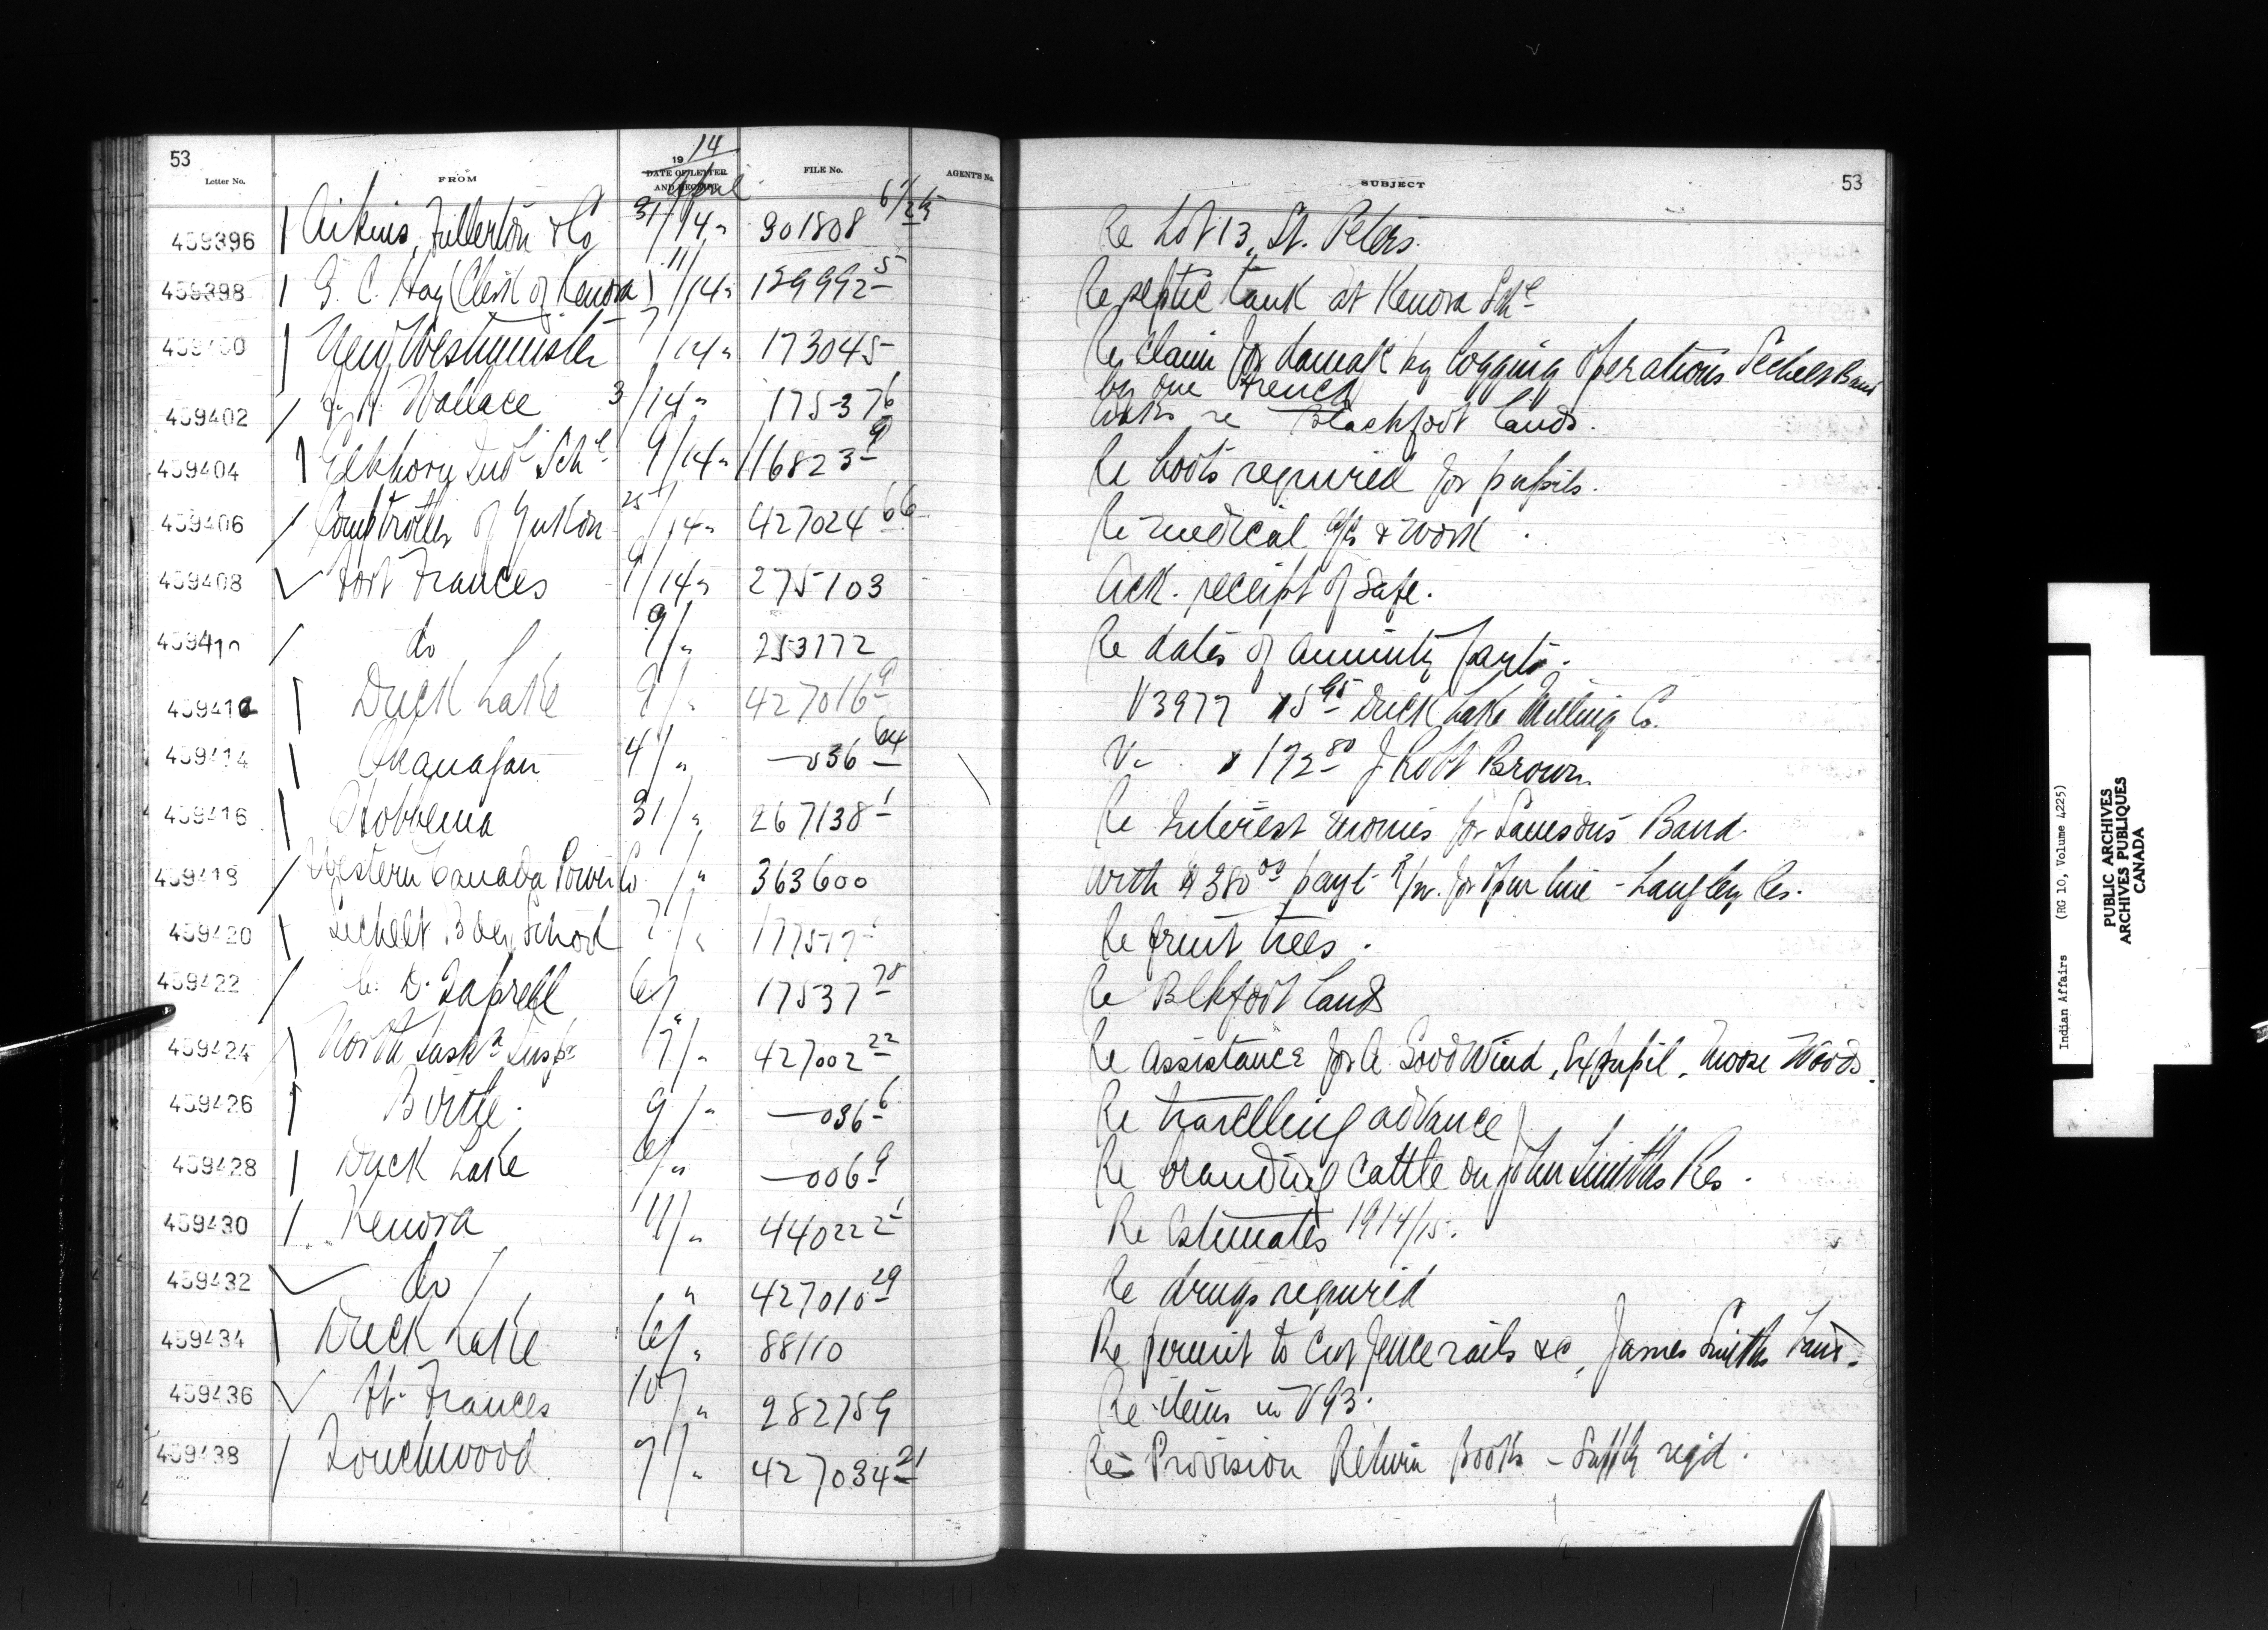 53
19 14
Letter No. FROM DATE OF LETTER AND RECEIPT FILE No. AGENT'S No. SUBJECT 53
April
459396 Aikins, Fullerton & Co 31/14 " 301808 Re Lot 13, St. Peters.
459398 G. C. Hay (Clerk of Kenora) 11/14 " 129992-5 Re septic tank at Kenora Schl
459400 New Westminster 7/14 " 173045 Re claim for damage by logging operations Sechelt Band
by one French
459402 H. Wallace 3/14 " 17537 6 re Blackfoot Lands.
459404 Elkhorn Indl Schl 9/14 " 116823-9 Re boots required for pupils.
459406 Comptroller of Yukon 25/14 " 427024 66 Re medical a/c & work
459408 Fort Frances 9/14 " 275103 Ack. receipt of safe.
459410 do 9/ " 253172 Re dates of annuity payts.
459412 Duck Lake 9/ " 427016-9 V3977 $5.95 Duck Lake Milling Co.
459414 Okanagan 4/ " —036 64 V— $172.80 J Robt Brown
459416 Hobbema 31/ " 267138-1 Re Interest monies for Samsons Band.
459418 Western Canada Power Co / " 363600 With $380.00 payt for line - Langley Res.
459420 Sechelt Bdg School 7/ " 17517 Re fruit trees.
459422 C. D. Taprell 6/ " 17537 78 Re Blkfoot Lands
459424 North Saskn Insp. 7/ " 427002 22 Re assistance for A. Goodwind, Expupil, Moose Woods.
459426 Birtle 9/ " —036-6 Re travelling advance
459428 Duck Lake 6/ " —006-9 Re branding cattle on John Smiths Res.
459430 Kenora 11/ " 440222-1 Re Estimates 1914/15.
459432 do / " 427010 29 Re drugs required
459434 Duck Lake 6/ " 88110 Re permit to cut fence rails &c, James Smiths Band.
459436 Ft. Frances 10/ " 282759 Re items in V93.
459438 Touchwood 7/ " 427034 21 Re Provision Return Books - Supply reqd.
Indian Affairs (RG 10, Volume 4225)
PUBLIC ARCHIVES
ARCHIVES PUBLIQUES
CANADA